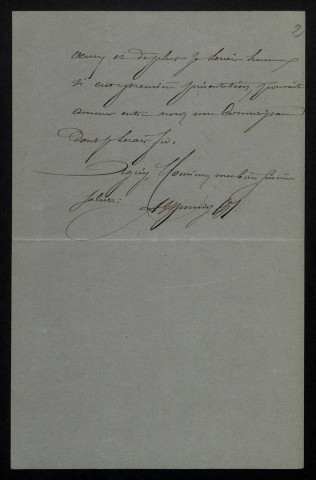 2
et de plus je serais heureux
si cette première présentation pouvait
amener entre nous une connaissance
dont je serais fier.
Agréez, Monsieur, mes bien sincères
saluts.